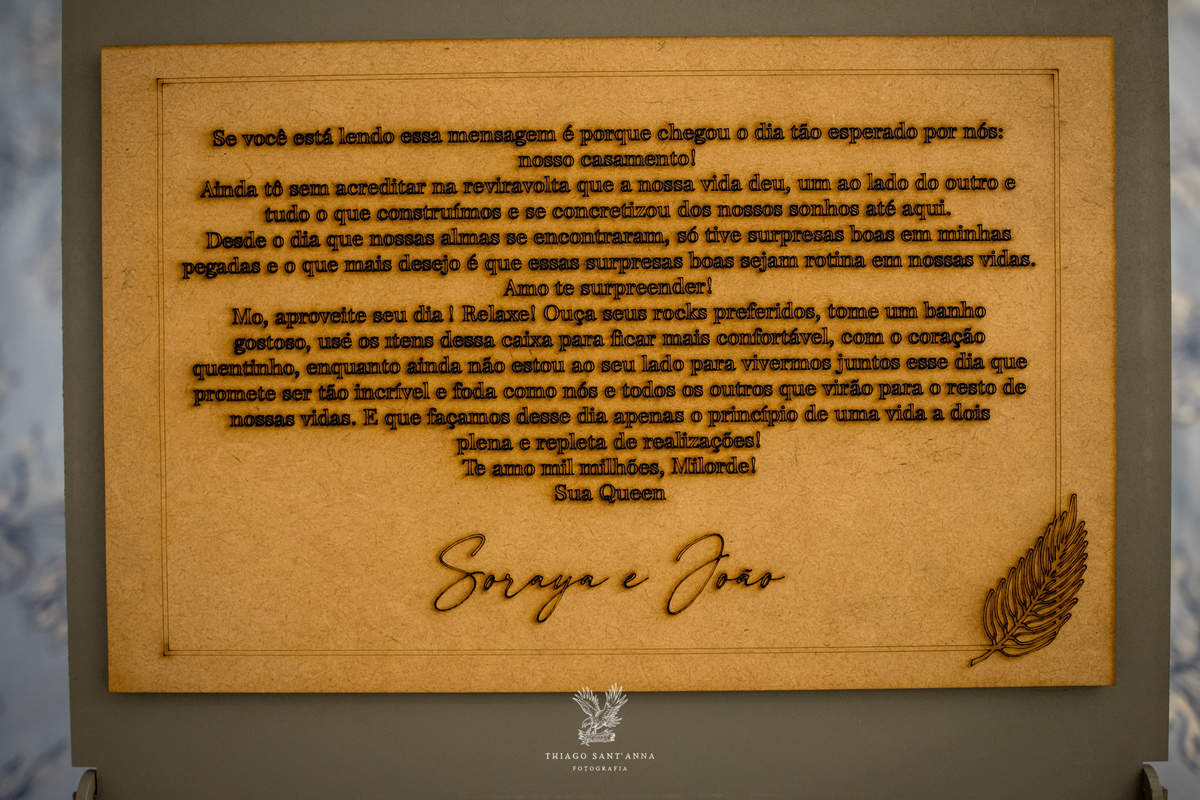 Se você está lendo essa mensagem é porque chegou o dia tão esperado por nós:
nosso casamento!
Ainda tô sem acreditar na reviravolta que a nossa vida deu, um ao lado do outro e
tudo o que construímos e se concretizou dos nossos sonhos até aqui.
Desde o dia que nossas almas se encontraram, só tive surpresas boas em minhas
pegadas e o que mais desejo é que essas surpresas boas sejam rotina em nossas vidas.
Amo te surpreender!
Mo, aproveite seu dia ! Relaxe! Ouça seus rocks preferidos, tome um banho
gostoso, usé os itens dessa caixa para ficar mais confortável, com o coração
quentinho, enquanto ainda não estou ao seu lado para vivermos juntos esse dia que
promete ser tão incrível e foda como nós e todos os outros que virão para o resto de
nossas vidas. E que façamos desse dia apenas o princípio de uma vida a dois
plena e repleta de realizações!
Te amo mil milhões, Milorde!
Sua Queen
Soraya e João
THIAGO SANT'ANNA
FOTOGRAFIA